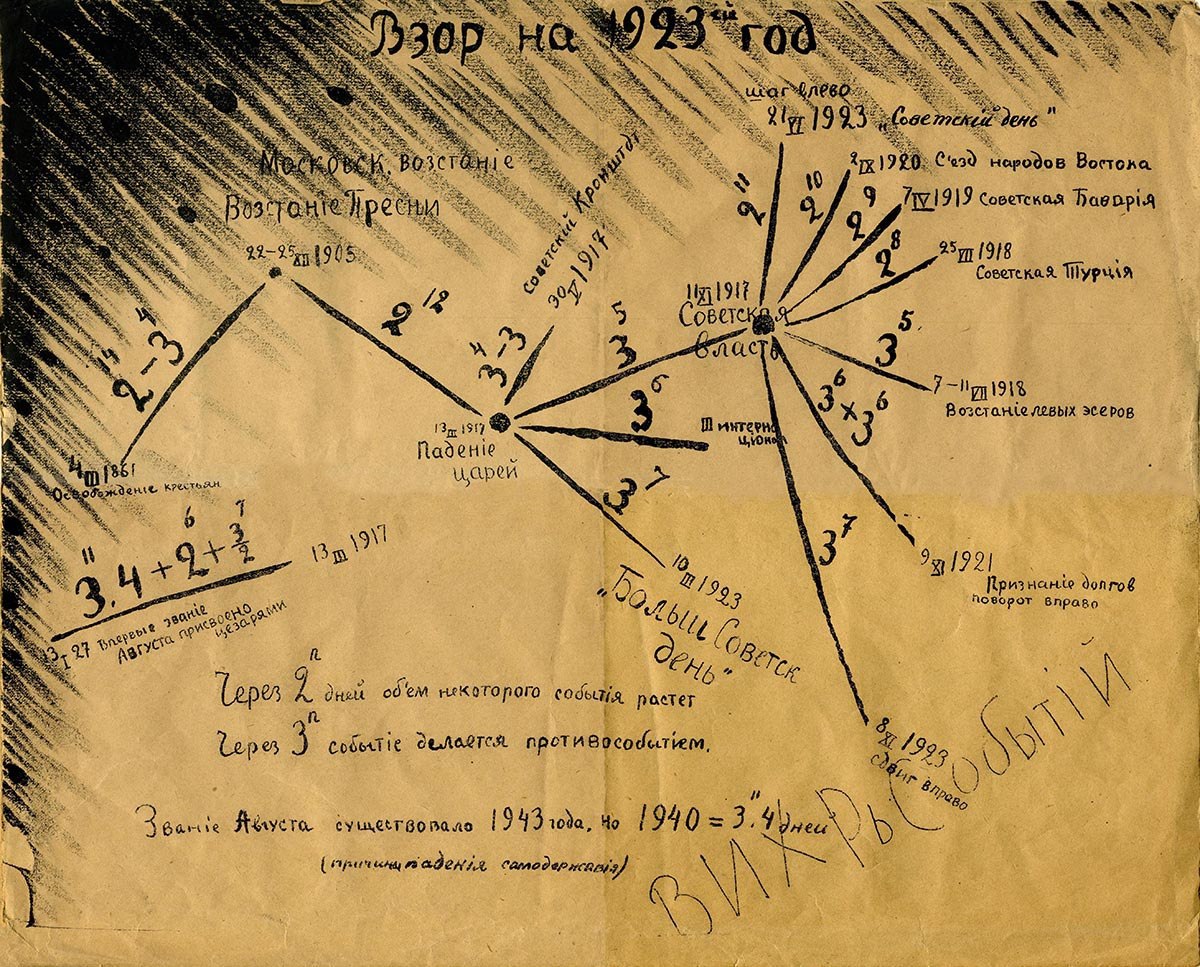 Взор на 1923ий год
шаг влево
21 VI 1923 „Советскiй день"
Московск. возстанiе
Возстанiе Пресни
22–25 XII 1905
2¹⁴ – 3⁴
4 III 1861
Освобожденiе крестьян
2¹²
13 III 1917
Паденiе
царей
Советскiй Кронштадт
30 V 1917
3⁴ – 3
3⁵
3⁶
III интерна
ционал
3⁷
10 III 1923
„Больш Советск
день"
11 XI 1917
Советская
власть
2¹¹
2¹⁰
2 IX 1920 С'езд народов Востока
2⁹
7 IV 1919 Советская Баварiя
2⁸
25 VII 1918
Советская Турцiя
3⁵
7–11 VII 1918
Возстанiе левых эсеров
3⁶ + 3⁶
9 XI 1921
Признанiе долгов
поворот вправо
3⁷
8 XI 1923
сдвиг вправо
3¹¹. 4 + 2⁶ + 3⁷/2
13 III 1917
13 I 27 Впервые званiе
Августа присвоено
цезарями
Через 2ⁿ дней об'ем некоторого событiя растет
Через 3ⁿ событiе делается противособытiем.
Званiе Августа существовало 1943 года. Но 1940 = 3¹¹.4 дней
(причины паденiя самодержавiя)
ВИХРЬ СОБЫТIЙ